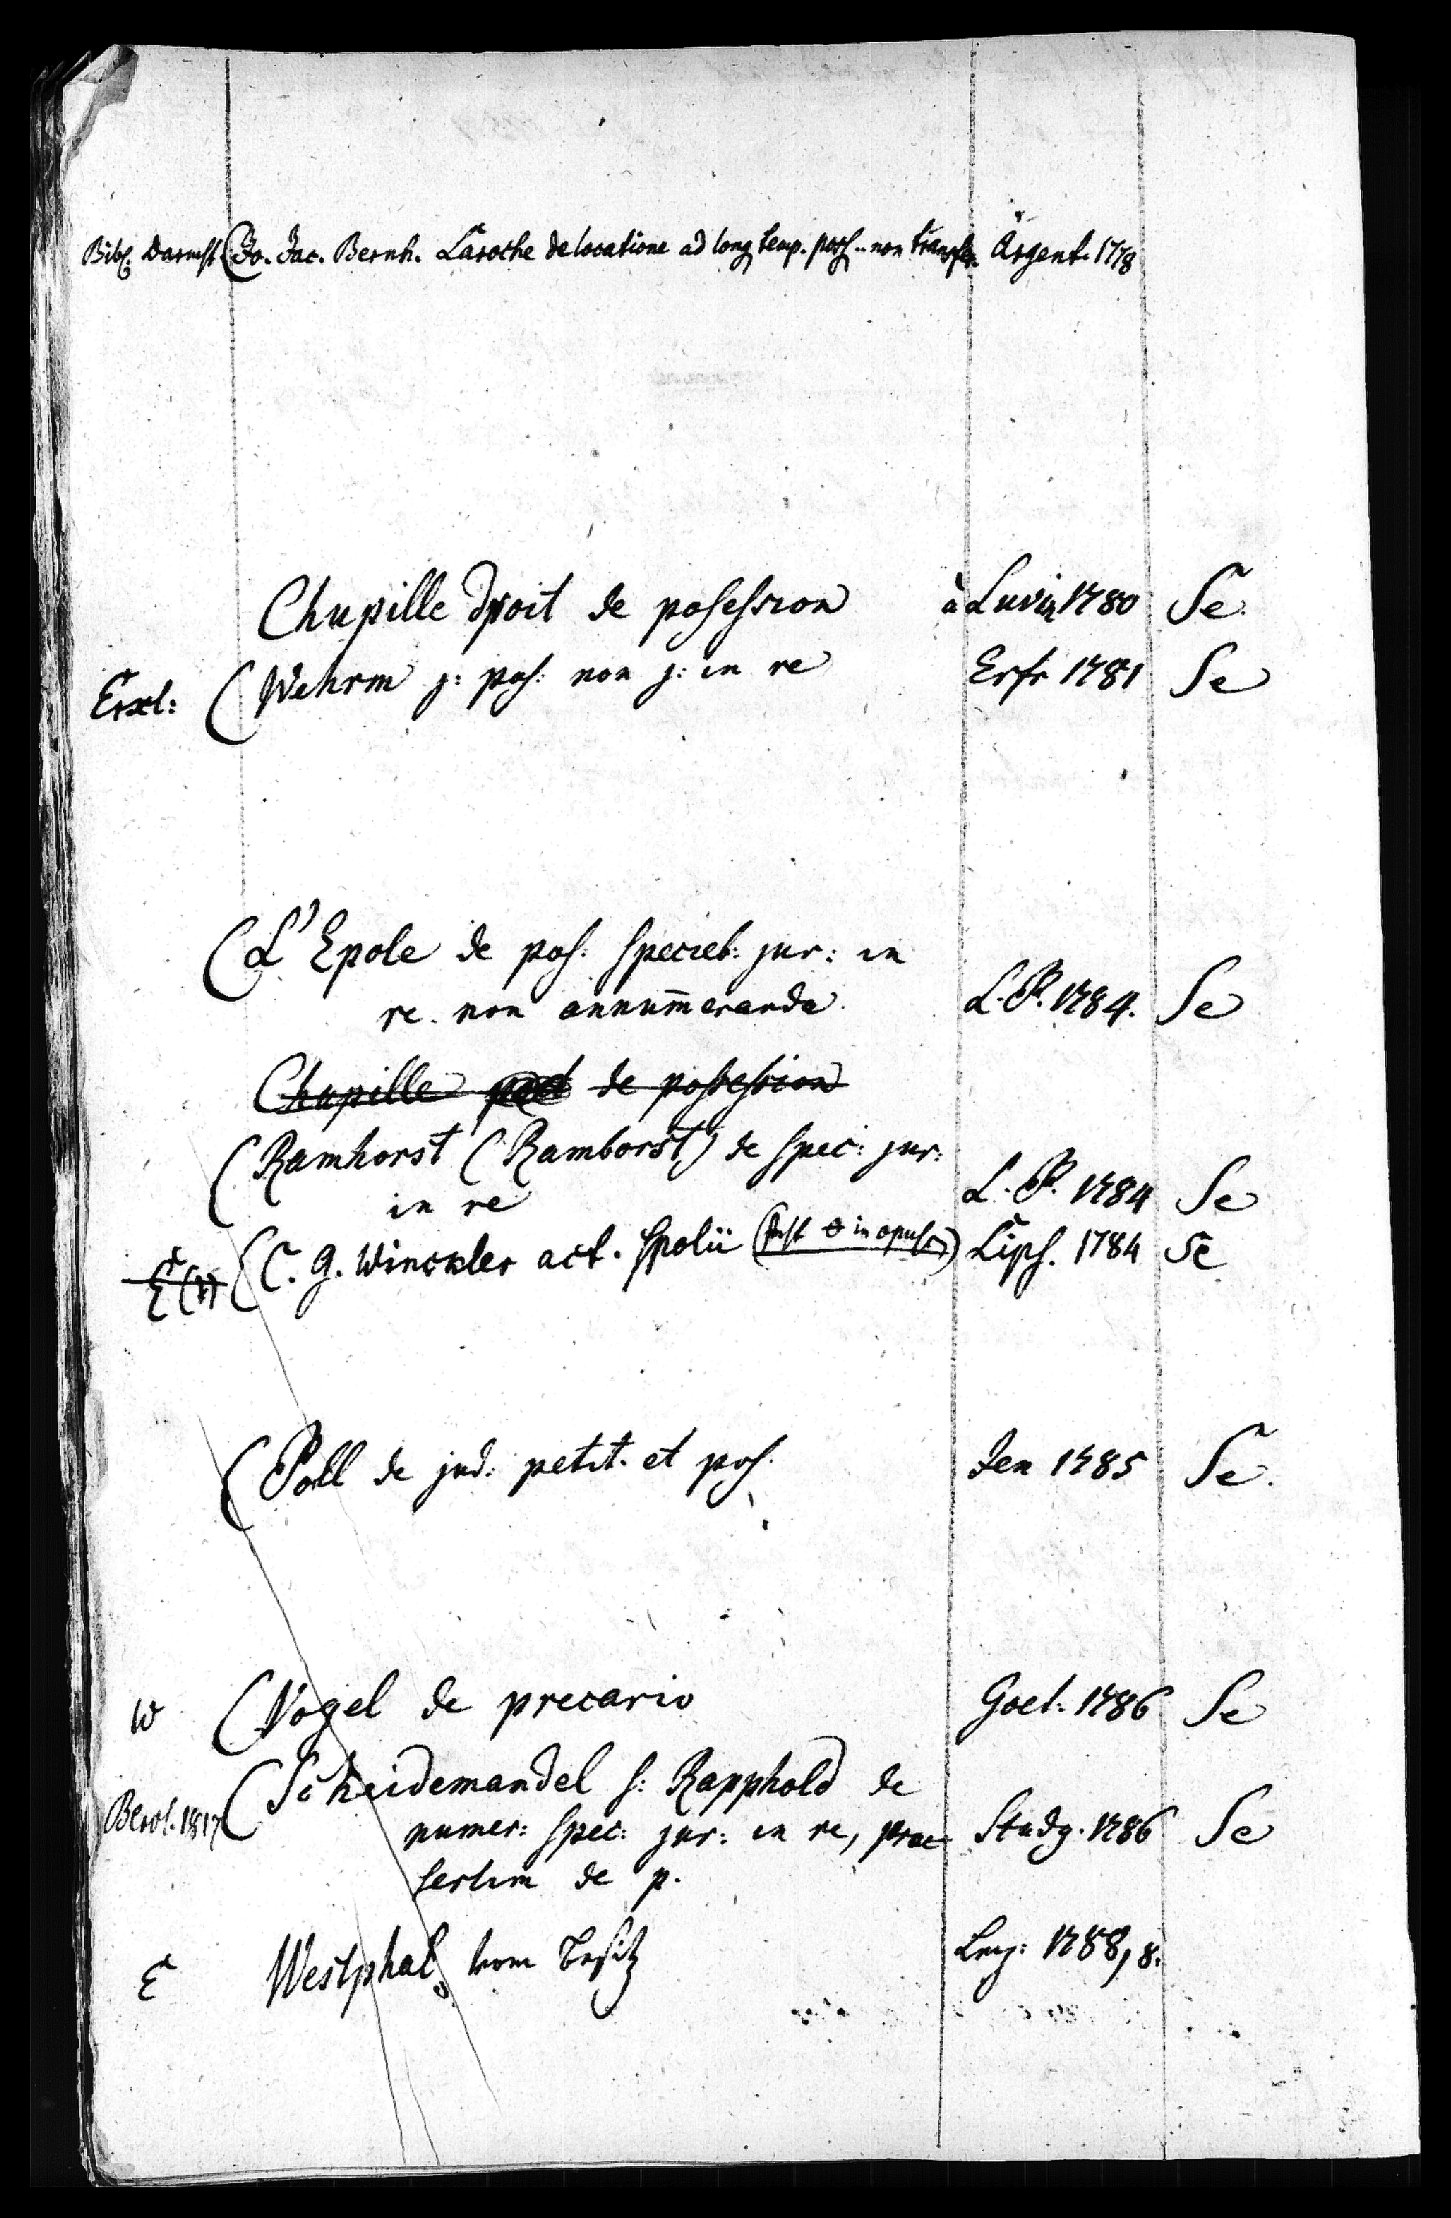 Bibl. Darmst (Jo. Jac. Bernh. Laroche de locatione ad long temp. poss. non transfer. Argent. 1778
Chupille droit de possession à Luvig 1780 Se.
Erxl: (Wehrm j: poss: non j: in re Erfr 1781 Se
(L'Epole de poss: specieb: jur: in
re. non annumeranda. L. B. 1784. Se
Chupille de possession
(Ramhorst (Ramborst) de spec: jur:
in re L. B. 1784 Se
E (C. G. Winckler act. spolii (in opusc) Lips. 1784 Se
(Poll de jud: petit. et poss. Jen 1785 Se.
W (Vogel de precario Goet. 1786 Se
Berol. 1817 (Scheidemandel s: Rapphold de
numer: spec: jur: in re, prae- Studg. 1786 Se
sertim de p.
E Westphal, vom Besitz Leipz: 1788, 8.